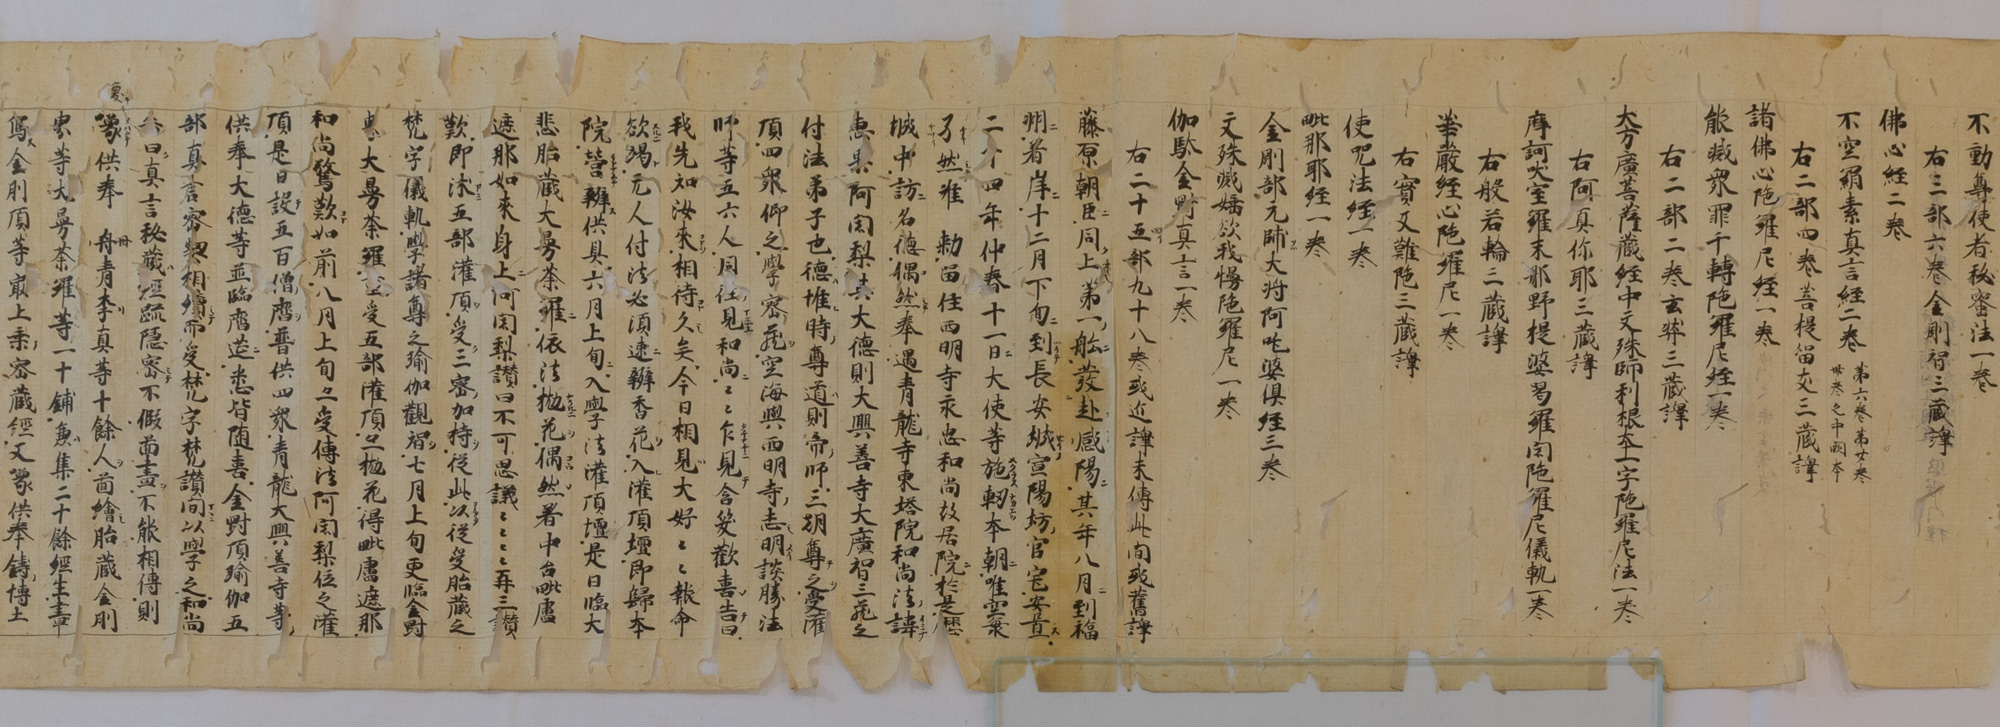 不動尊使者秘密法一卷
右三部六卷金剛智三藏譯
佛心經二卷
不空羂索真言經二卷 第六卷第廿卷 卅卷之中闕本
右二部四卷菩提留支三藏譯
諸佛心陀羅尼經一卷
能滅衆罪千轉陀羅尼經一卷
右二部二卷玄奘三藏譯
大方廣菩薩藏經中文殊師利根本一字陀羅尼法一卷
右阿真你耶三藏譯
摩訶吠室羅末那野提婆曷羅闍陀羅尼儀軌一卷
右般若輪三藏譯
華嚴經心陀羅尼一卷
右實叉難陀三藏譯
使咒法經一卷
毗那耶經一卷
金剛部元帥大將阿吒婆俱經三卷
文殊滅婬欲我慢陀羅尼一卷
伽馱金剛真言一卷
右二十五部九十八卷或近譯未傳此間或舊譯
藤原朝臣同上第一舩發赴感陽其年八月到福
州着岸十二月下旬到長安城宣陽坊官宅安置
二十四年仲春十一日大使等旋軔本朝唯空海
孑然准 勑留住西明寺永忠和尚故居院於是歷
城中訪名德偶然奉遇青龍寺東塔院和尚法諱
惠果阿闍梨其大德則大興善寺大廣智三藏之
付法弟子也德惟時尊道則帝師三朝尊之受灌
頂四衆仰之學密藏空海與西明寺志明談勝法
師等五六人同往見和尚々々乍見含笑歡喜告曰
我先知汝來相待久矣今日相見大好々々報命
欲竭無人付法必須速辦香花入灌頂壇即歸本
院營辦供具六月上旬入學法灌頂壇是日臨大
悲胎藏大曼荼羅依法抛花偶然着中台毗盧
遮那如來身上阿闍梨讃曰不可思議々々々再三讃
歎即沐五部灌頂受三密加持從此以後受胎藏之
梵字儀軌學諸尊之瑜伽觀智七月上旬更臨金剛
界大曼荼羅重受五部灌頂亦抛花得毗盧遮那
和尚驚歎如前八月上旬亦受傳法阿闍梨位之灌
頂是日設五百僧齋普供四衆青龍大興善寺等
供奉大德等並臨齋莚悉皆随喜金剛頂瑜伽五
部真言密契相續而受梵字梵讃間以學之和尚
告曰真言秘藏經疏隱密不假啚畫不能相傳則
喚供奉丹青李真等十餘人啚繪胎藏金剛
界等大曼荼羅等一十鋪兼集二十餘經生書
寫金剛頂等最上乘密藏經又喚供奉鑄博士